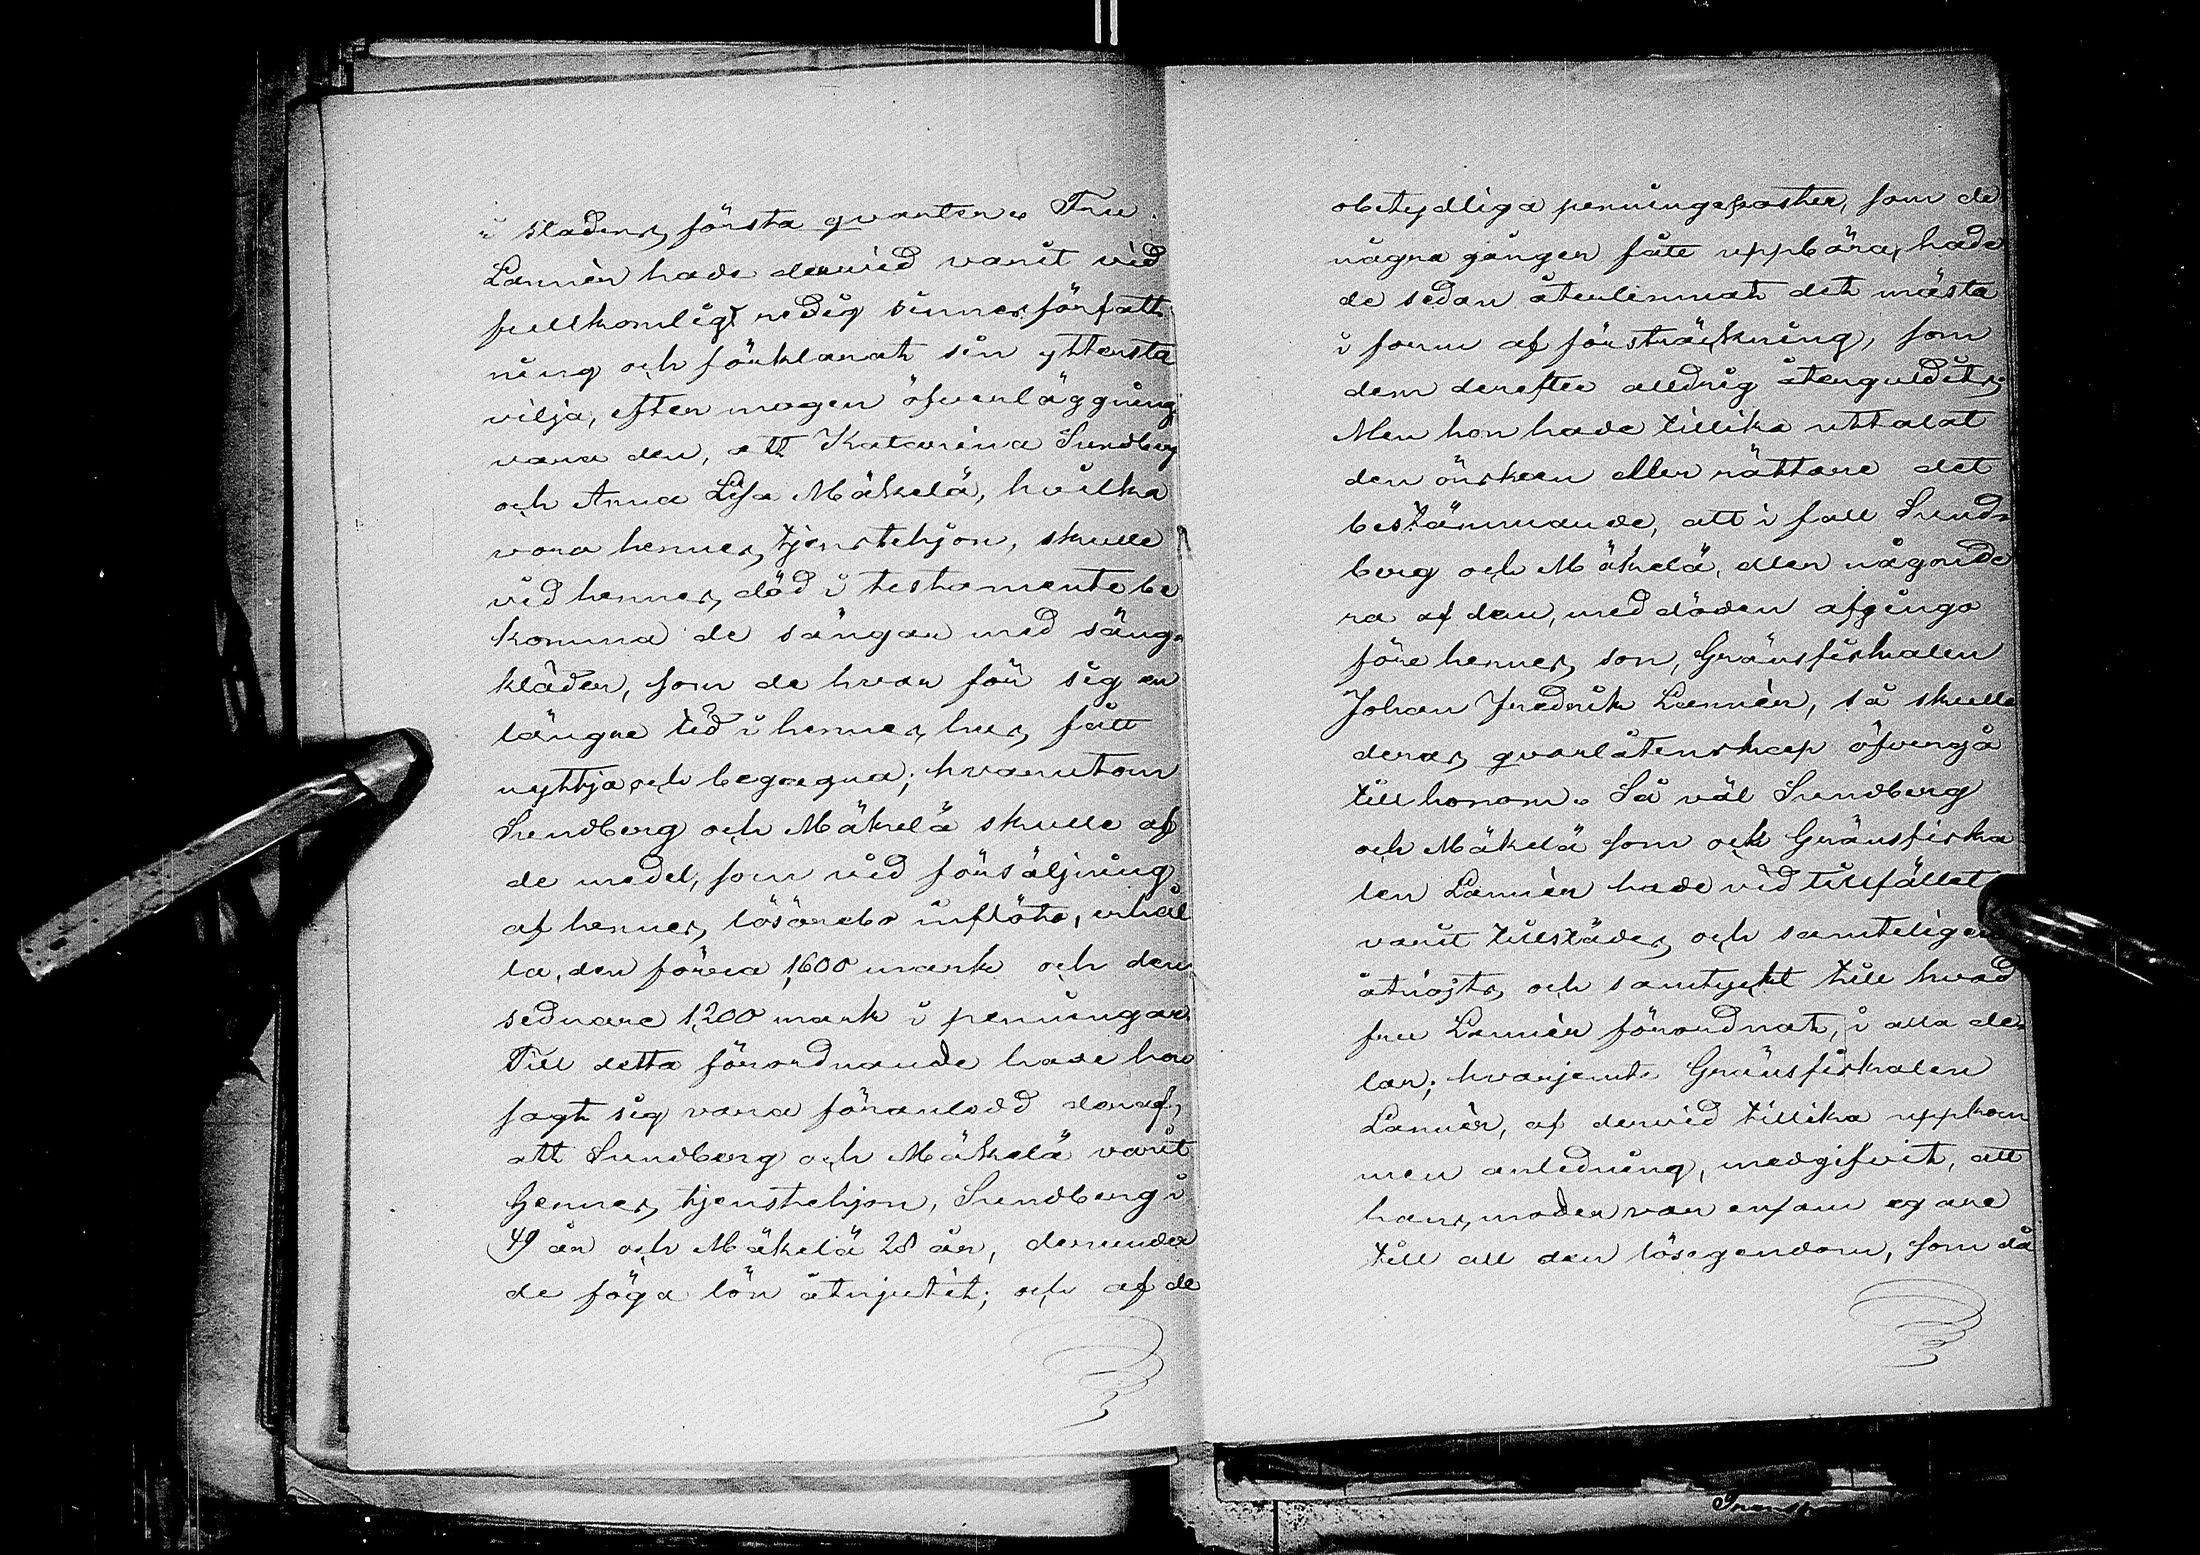 i stadens första qvarter. Fru
Lannèr hade dervid varit vid
fullkomligt redig sinnesförfatt
ning och förklarat sin yttersta
vilja, efter mogen öfverläggning
vara den, att Katarina Sundberg
och Anna Lisa Mäkelä, hvilka
vora hennes tjenstehjon, skulle
vid hennes död i testamente be
komma de sängar med säng-
kläder, som de hvar för sig en
längre tid i hennes hus fått
nyttja och begagna; hvarutom
Sundberg och Mäkelä skulle af
de medel, som vid försäljning
af hennes lösörebo inflöte, erhål
la, den förra 1,600 mark och den
sednare 1,200 mark i penningar.
Till detta förordnande hade hon
sagt sig vara föranledd deraf,
att Sundberg och Mäkelä varit
hennes tjenstehjon, Sundberg i
49 år och Mäkelä 28 år, derunder
de föga lön åtnjutit; och af de
obetydliga penningeposter, som de
några gånger fått uppbära, hade
de sedan återlemnat det mästa
i form af försträckning, som
dem derefter aldrig återguldits.
Men hon hade tillika uttalat
den önskan eller rättare det
bestämmande, att i fall Sund-
berg och Mäkelä, eller någonde
ra af dem, med döden afginge
före hennes son, Gränsfiskalen
Johan Fredrik Lannèr, så skulle
deras qvarlåtenskap öfvergå
till honom. Så väl Sundberg
och Mäkelä som ock Gränsfiska
len Lannèr hade vid tillfället
varit tillstädes och samteligen
åtnöjts och samtyckt till hvad
fru Lannèr förordnat, i alla de-
lar; hvarjemte Gränsfiskalen
Lannèr, af dervid tillika uppkom
men anledning, medgifvit, att
hans moder var ensam egare
till all den lösegendom, som då